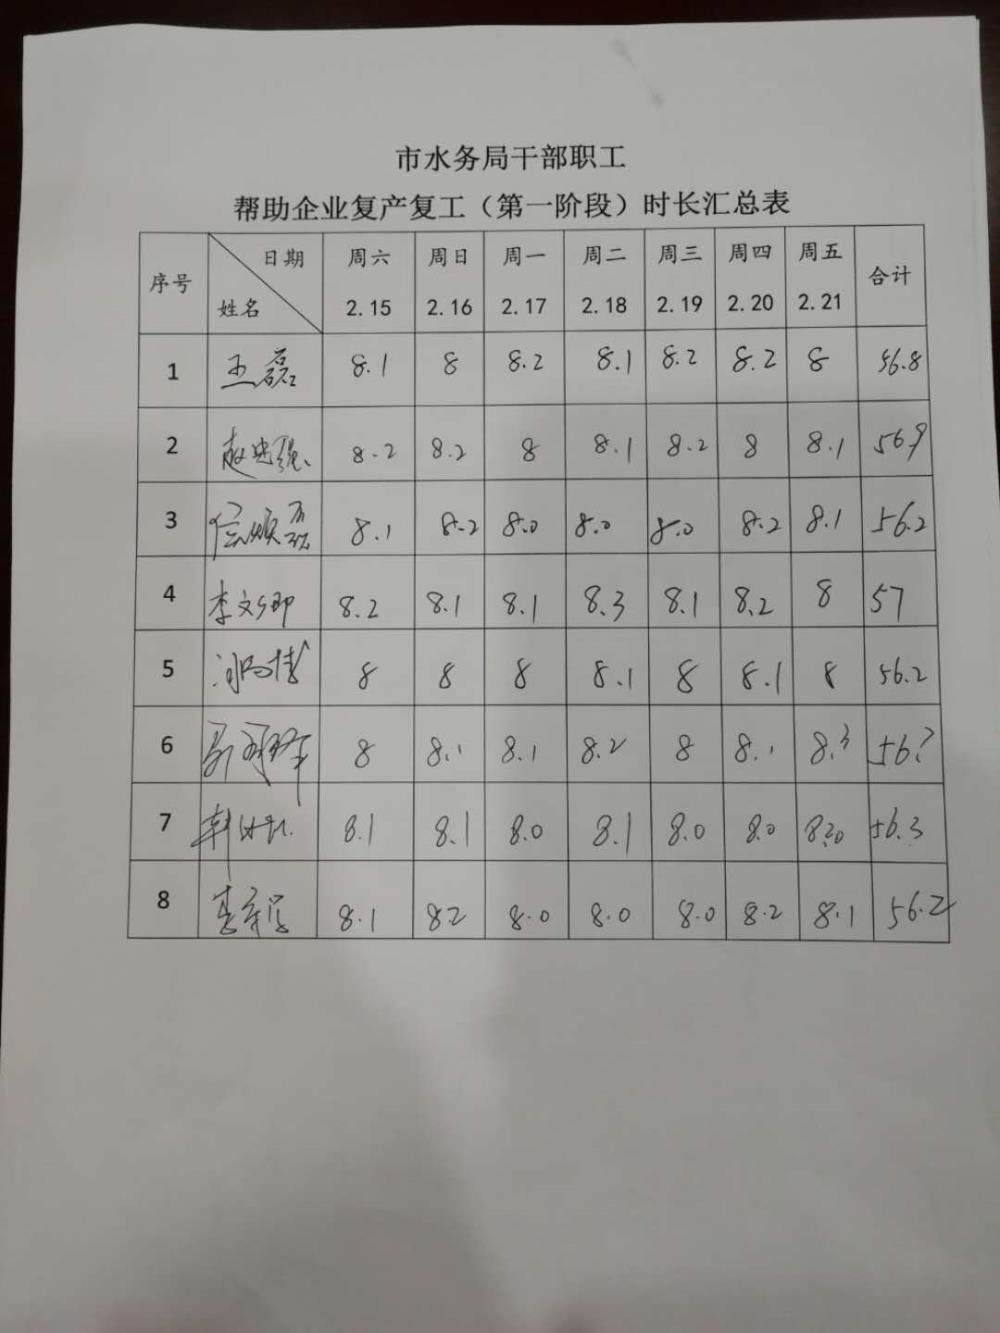 市水务局干部职工
帮助企业复产复工（第一阶段）时长汇总表
序号 日期 姓名 周六 2.15 周日 2.16 周一 2.17 周二 2.18 周三 2.19 周四 2.20 周五 2.21 合计
1 王磊 8.1 8 8.2 8.1 8.2 8.2 8 56.8
2 8.2 8.2 8 8.1 8.2 8 8.1 56.9
3 8.1 8.2 8.0 8.0 8.0 8.2 8.1 56.2
4 李文卿 8.2 8.1 8.1 8.3 8.1 8.2 8 57
5 8 8 8 8.1 8 8.1 8 56.2
6 8 8.1 8.1 8.2 8 8.1 8.3
7 8.1 8.1 8.0 8.1 8.0 8.0 56.3
8 8.1 8.2 8.0 8.0 8.0 8.2 8.1 56.2